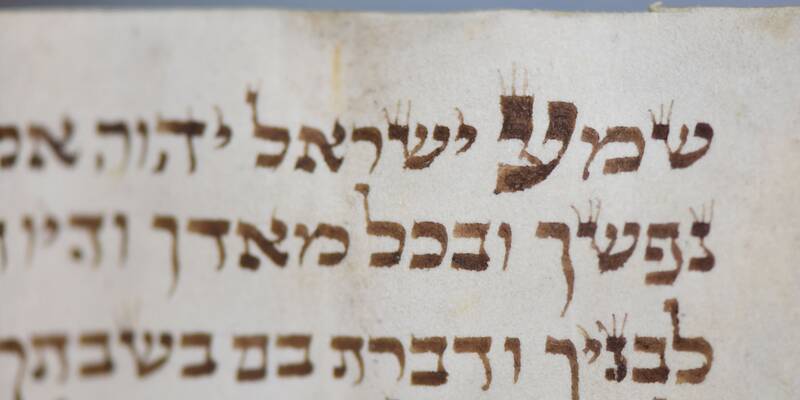 שמע ישראל יהוה
נפשך ובכל מאדך והיו
לבניך ודברת בם בשבתך